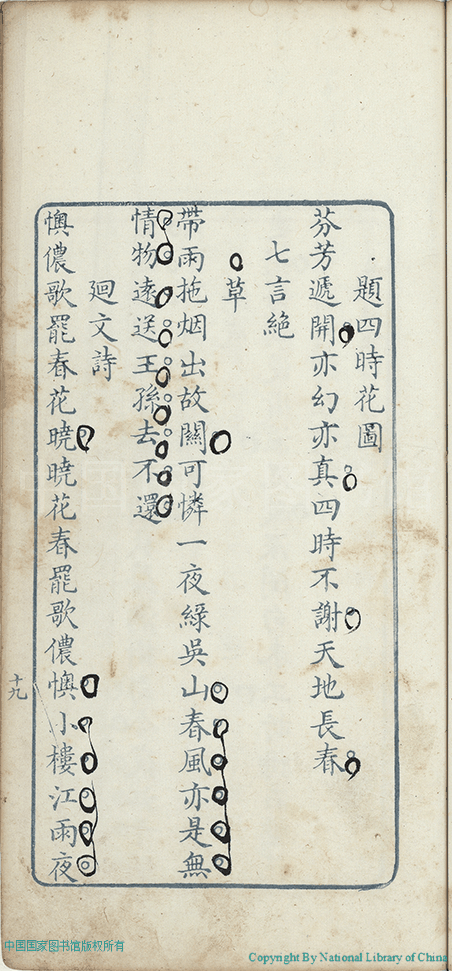 題四時花圖
芬芳遞開亦幻亦真四時不謝天地長春
七言絶
草
帶雨拖烟出故關可憐一夜綠吳山春風亦是無
情物遠送王孫去不還
廻文詩
懊儂歌罷春花曉曉花春罷歌儂懊小樓江雨夜
十九
中国国家图书馆版权所有
Copyright By National Library of China